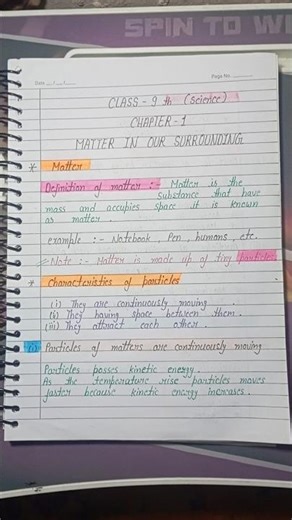 SPIN TO WI
Date
Page No.
CLASS - 9 th (Science)
CHAPTER - 1
MATTER IN OUR SURROUNDING
* Matter
Definition of matter :- Matter is the
Substance that have
mass and accupies space it is known
as matter.
example :- Notebook, Pen, humans, etc.
Note :- Matter is made up of tiny particles
* Characteristics of particles
(i) They are continuously moving.
(ii) They having space between them.
(iii) They attract each other.
(i) Particles of matters are continuously moving
Particles posses kinetic energy.
As the temperature rise particles moves
faster because kinetic energy increases.